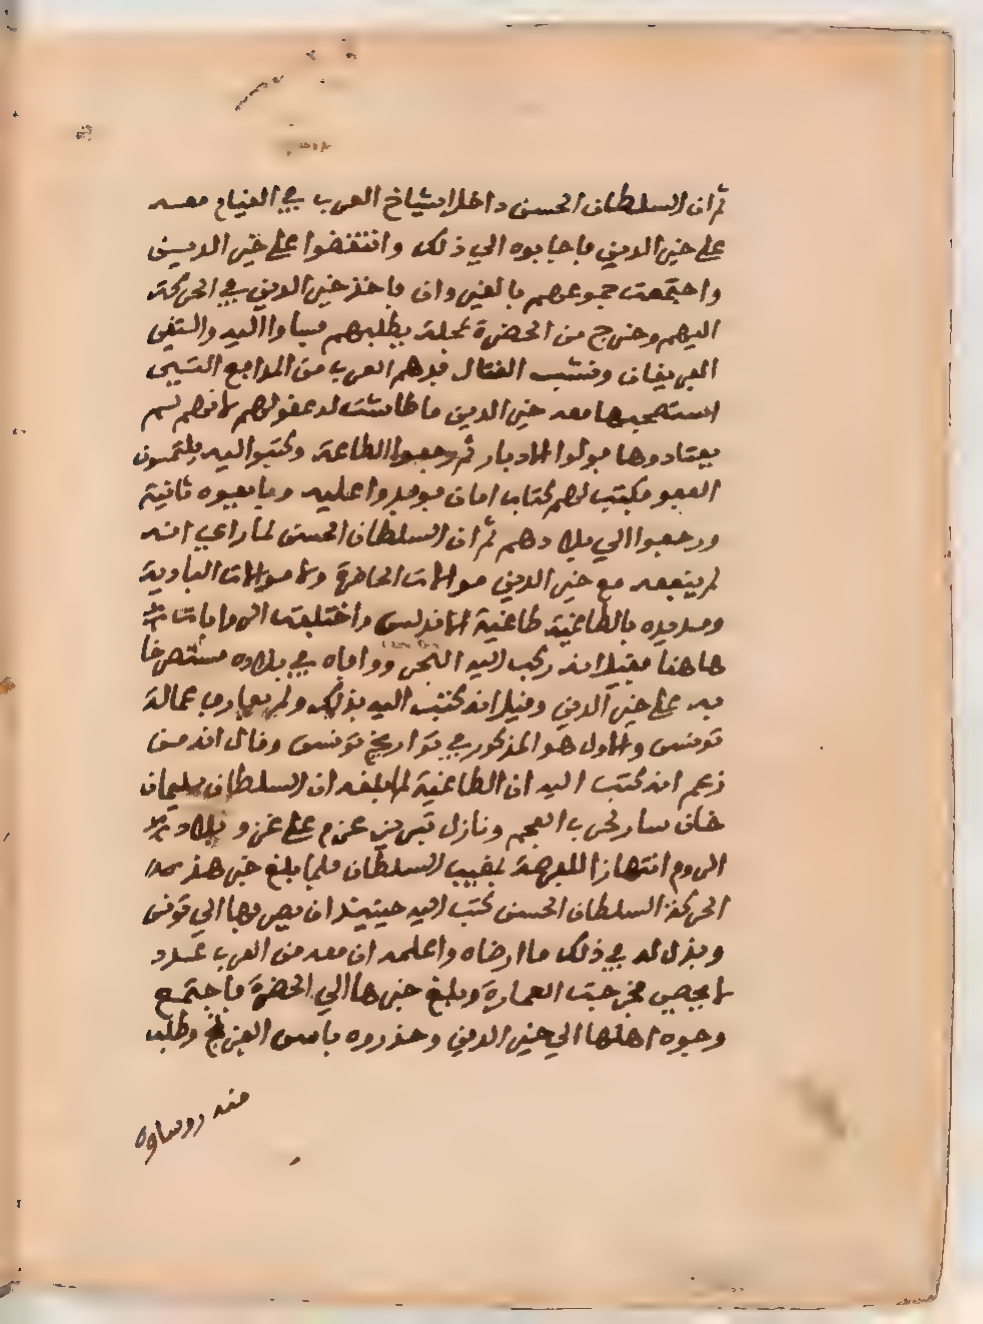 ثم ان السلطان الحسن داخل اشياخ العرب في القيام معه
على خير الدين فاجابوه الي ذلك وانتقضوا على خير الدين
واجتمعت جموعهم بالقيروان فاخذ خير الدين في الحركة
اليهم وخرج من الحضرة بمحلة يطلبهم فساوا اليه والتقى
الفريقان ونشب القتال فدهم العرب من المدافع التي
استصحبها معه خير الدين ما طاشت له عقولهم لانهم لم
يعتادوها فولوا الادبار ثم رجعوا الطاعة وكتبوا اليه يلتمسون
العفو فكتب لهم كتاب امان فوفدوا عليه وبايعوه ثانية
ورجعوا الي بلادهم ثم ان السلطان الحسن لما راي انه
لم ينفعه مع خير الدين موالات الحاضرة ولا موالات البادية
ومد يده بالطاغية طاغية الاندلس واختلفت الروايات
هاهنا فقيل انه ركب اليه البحر ووافاه في بلاده مستصرخا
به على خير الدين وقيل انه كتب اليه بذلك ولم يفارف عمالة
تونس والاول هو المذكور في تواريخ تونس وقال انه من
زعم انه كتب اليه ان الطاغية لما بلغه ان السلطان سليمان
خان سار لحرب العجم ونازل تبريز عزم على غزو بلاد
الروم انتهازا للفرصة بمغيب السلطان فلما بلغ خبر هذه
الحركة السلطان الحسن كتب اليه حينيذ ان يصرفها الي تونس
وبذل له في ذلك ما ارضاه واعلمه ان معه من العرب عدد
لا يحصي فخرجت العمارة وبلغ خبرها الي الحضرة فاجتمع
وجوه اهلها الي خير الدين وحذروه باس الفرنج وطلب
منه روساوه